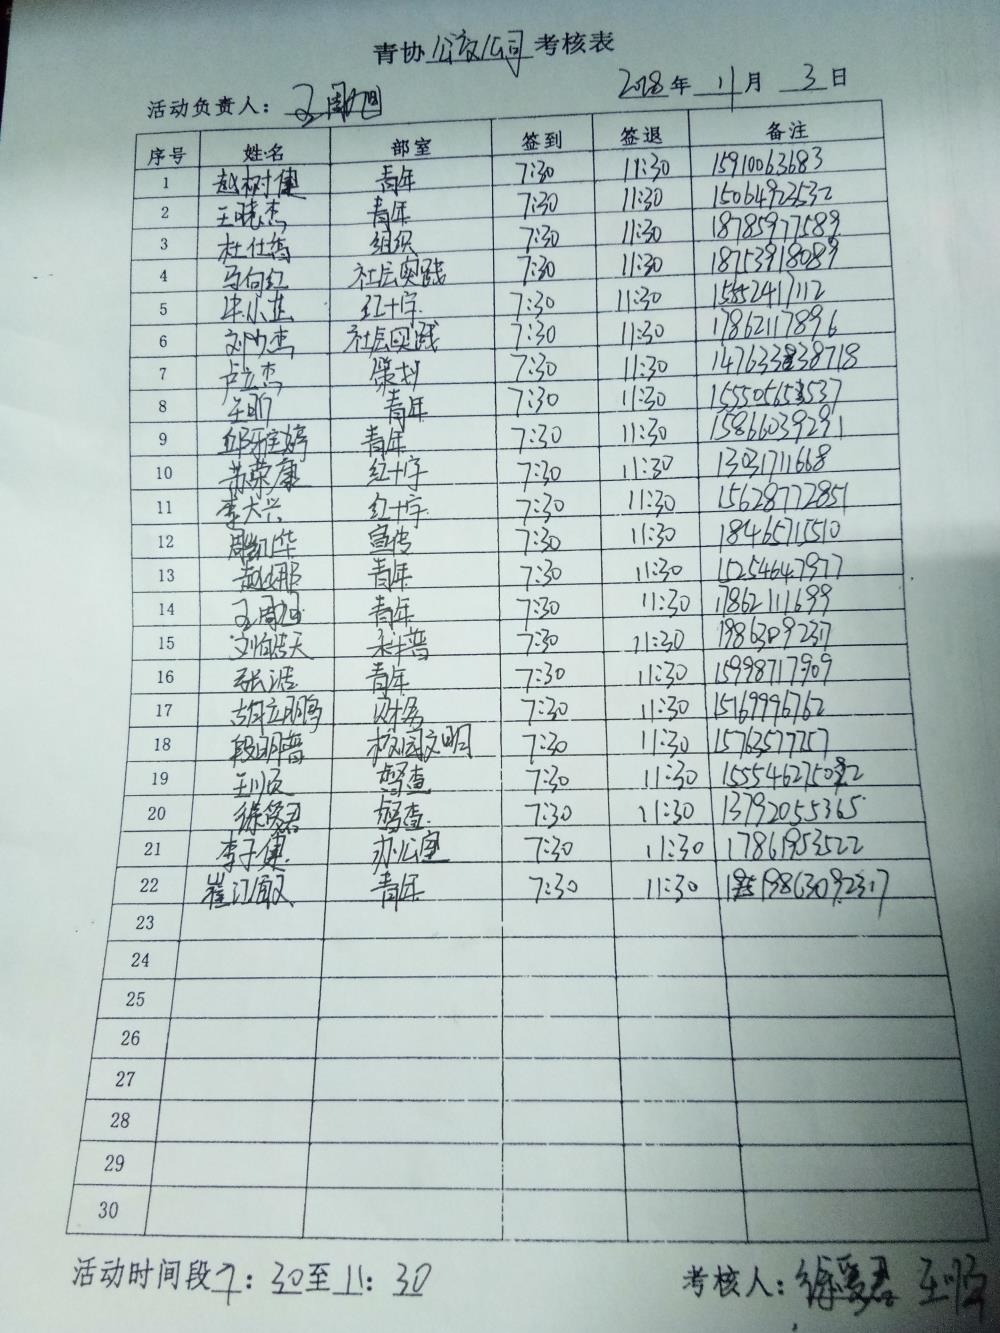 青协公交公司考核表
活动负责人：王周旭 2018年 11月 3日
序号 姓名 部室 签到 签退 备注
1 赵树健 青年 7:30 11:30 15910063683
2 王晓杰 青年 7:30 11:30 15064923532
3 杜仕鹏 组织 7:30 11:30 18785977589
4 马向红 社会实践 7:30 11:30 18753918089
5 红十字 7:30 11:30 15552417112
6 社会实践 7:30 11:30 17862117896
7 卢立杰 策划 7:30 11:30
8 王昕 青年 7:30 11:30
9 邱雅婷 青年 7:30 11:30 15866039291
10 苏荣康 红十字 7:30 11:30 13031711668
11 李大兴 红十字 7:30 11:30 15628772851
12 周凯华 宣传 7:30 11:30 18465715510
13 赵娜 青年 7:30 11:30 15254647977
14 王周旭 青年 7:30 11:30 17862111699
15 刘皓天 科普 7:30 11:30
16 张浩 青年 7:30 11:30 15998717909
17 胡立鹏 财务 7:30 11:30 15169996762
18 段明普 校园文明 7:30 11:30 15763577757
19 王顺 督查 7:30 11:30
20 督查 7:30 11:30 13792055365
21 李子健 办公室 7:30 11:30 17861953522
22 崔江敏 青年 7:30 11:30 19863092317
23
24
25
26
27
28
29
30
活动时间段7：30至11：30 考核人：王顺